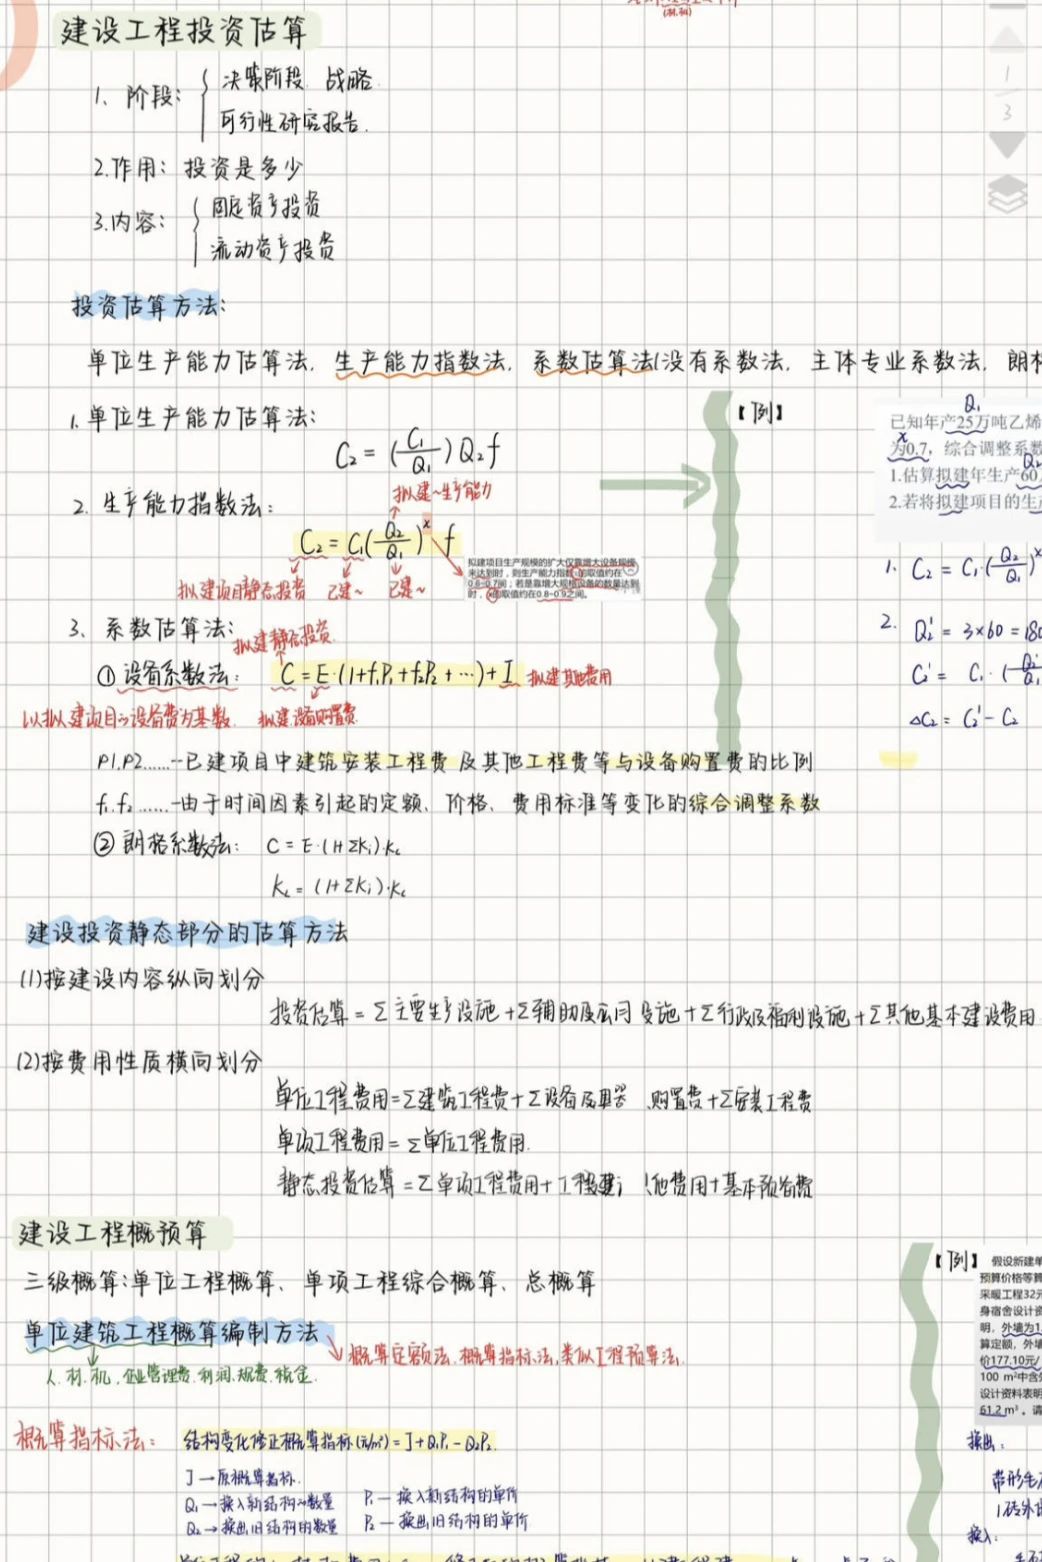 建设工程投资估算
1、阶段：
决策阶段 战略
可行性研究报告.
2.作用：投资是多少
3.内容：
固定资产投资
流动资产投资
投资估算方法：
单位生产能力估算法，生产能力指数法，系数估算法(没有系数法，主体专业系数法，朗
1.单位生产能力估算法：
C₂ = (C₁/Q₁) Q₂ f
2. 生产能力指数法：
拟建~生产能力
C₂ = C₁(Q₂/Q₁)ˣ f
拟建项目静态投资 已建~ 已建~
拟建项目生产规模的扩大仅靠增大设备规模
来达到时，则生产能力指数 的取值约在
0.6~0.7间；若是靠增大规模设备的数量达到
时， 的取值约在0.8~0.9之间。
3、系数估算法：
拟建静态投资
① 设备系数法： C = E·(1+f₁P₁+f₂P₂+…)+I 拟建其他费用
以拟建项目的设备费为基数. 拟建设备购置费
P1.P2......--已建项目中建筑安装工程费及其他工程费等与设备购置费的比例
f₁.f₂......--由于时间因素引起的定额、价格、费用标准等变化的综合调整系数
② 朗格系数法： C = E·(1+ΣKᵢ)·Kc
K_L = (1+ΣKᵢ)·Kc
建设投资静态部分的估算方法
(1)按建设内容纵向划分
投资估算 = Σ主要生产设施 + Σ辅助及公用设施 + Σ行政及福利设施 + Σ其他基本建设费用
(2)按费用性质横向划分
单位工程费用=Σ建筑工程费+Σ设备及工器 购置费+Σ安装工程费
单项工程费用 = Σ单位工程费用.
静态投资估算 = Σ单项工程费用+工程建 他费用+基本预备费
建设工程概预算
三级概算：单位工程概算、单项工程综合概算、总概算
单位建筑工程概算编制方法
概算定额法.概算指标法,类似工程预算法.
人.材.机.企业管理费.利润.规费.税金.
概算指标法：
结构变化修正概算指标(元/m²) = J+Q₁P₁-Q₂P₂.
J→原概算指标.
Q₁→换入新结构的数量 P₁—换入新结构的单价
Q₂→换出旧结构的数量 P₂—换出旧结构的单价
【例】
Q₁
已知年产25万吨乙烯
x
为0.7，综合调整系数
Q₂
1.估算拟建年生产60
2.若将拟建项目的生
1. C₂ = C₁·(Q₂/Q₁)ˣ
2. Q₂' = 3×60 = 180
C₂' = C₁·(Q₂'/Q₁
ΔC₂ = C₂' - C₂
【例】 假设新建单
预算价格等算
采暖工程32元
身宿舍设计资
明，外墙为1.
算定额，外墙
价177.10元/
100 m²中含外
设计资料表明
61.2 m³。请
换出：
带形毛
1砖外
换入：
1
3